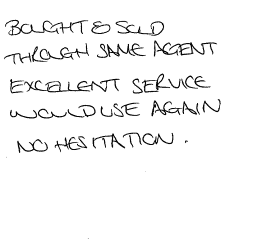 BOUGHT & SOLD
THROUGH SAME AGENT
EXCELLENT SERVICE
WOULD USE AGAIN
NO HESITATION.